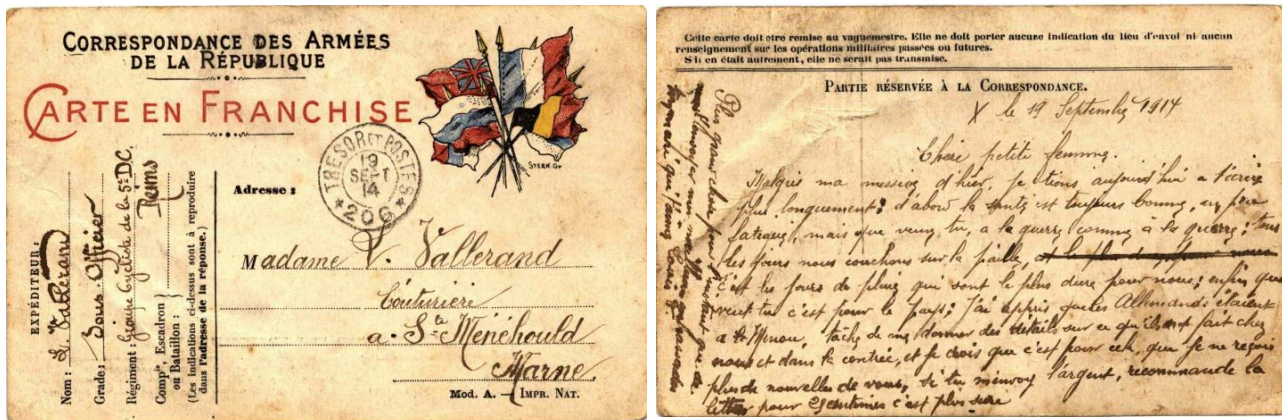 CORRESPONDANCE DES ARMÉES
DE LA RÉPUBLIQUE
CARTE EN FRANCHISE
STERN.Gr
TRESOR ET POSTES
19
SEPT
14
* 206 *
EXPÉDITEUR:
Nom: L. Vallerand
Grade: Sous-Officier
Régiment: Groupe Cycliste de la 5e D.C.
Reims
Compie, Escadron
ou Bataillon:
(Les indications ci-dessus sont à reproduire
dans l'adresse de la réponse.)
Adresse:
Madame V. Vallerand
Couturière
a Ste Ménéhould
Marne
Mod. A. — IMPR. NAT.
Cette carte doit etre remise au vaguemestre. Elle ne doit porter aucune indication du lieu d'envoi ni aucun
renseignement sur les opérations militaires passées ou futures.
S'il en était autrement, elle ne serait pas transmise.
PARTIE RÉSERVÉE À LA CORRESPONDANCE.
X le 19 Septembre 1914
Chère petite femme.
Malgrés ma missive d'hier, je tiens aujourd'hui a t'écrire
plus longuement; d'abord la santé est toujours bonne, un peu
fatigué, mais que veux tu, a la guerre comme à la guerre; tous
les jours nous couchons sur la paille,
c'est les jours de pluie qui sont le plus dure pour nous; enfin que
veux tu c'est pour le pays; J'ai appris que les Allemands étaient
a Ste Menou, tache de me donner des détails sur ce qu'ils ont fait chez
nous et dans la contrée, et je crois que c'est pour cela, que je ne reçois
plus de nouvelles de vous, si tu m'envoy l'argent, recommande la
lettre pour 25 centimes c'est plus sure
Plus grand chose pour l'instant que de